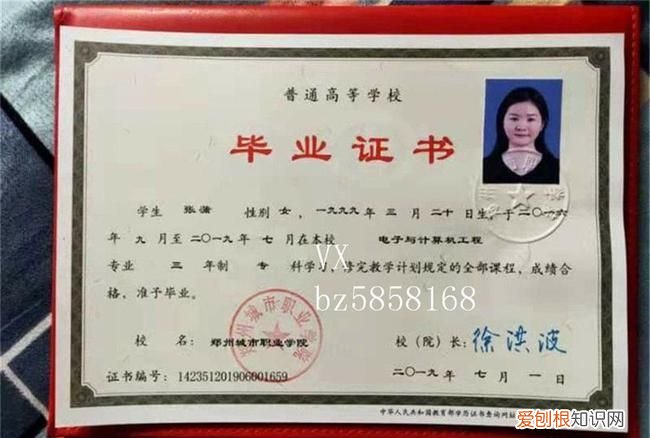 普通高等学校
毕业证书
学生 张蒲 性别 女，一九九九年 三月 二十日生，于二〇一六
年 九月至二〇一九年 七月在本校 电子与计算机工程
专业 三 年制 专 科学习，修完教学计划规定的全部课程，成绩合
格，准予毕业。
VX
bz5858168
校 名：郑州城市职业学院
校（院）长：徐洪波
郑州城市职业学院
证书编号：142351201906001659
二〇一九年 七月 一日
中华人民共和国教育部学历证书查询网址
爱刨根知识网